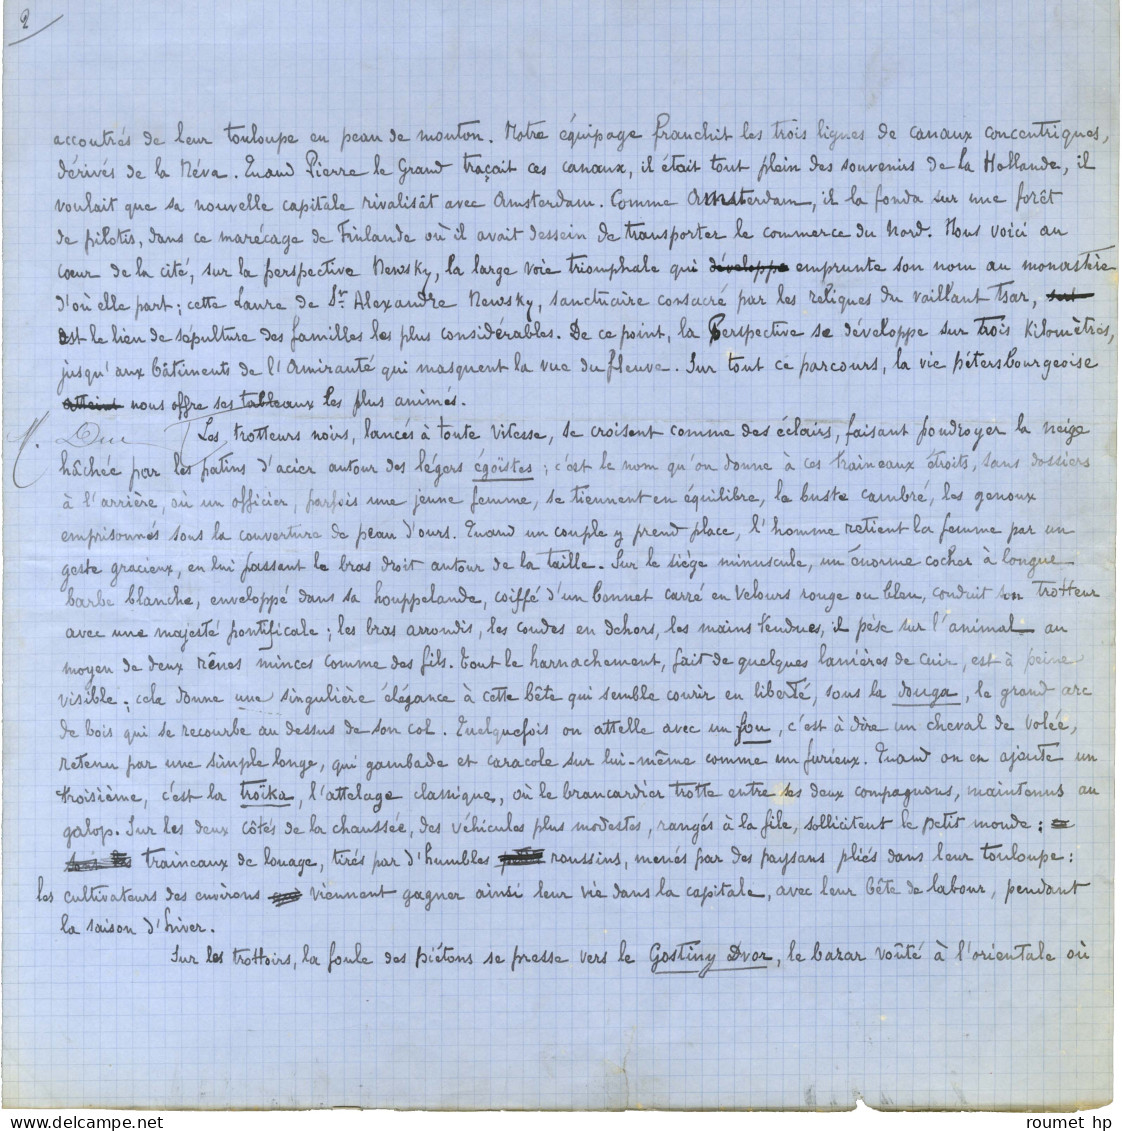 2
accoutrés de leur touloupe en peau de mouton. Notre équipage franchit les trois lignes de canaux concentriques,
dérivés de la Néva. Quand Pierre le Grand traçait ces canaux, il était tout plein des souvenirs de la Hollande, il
voulait que sa nouvelle capitale rivalisât avec Amsterdam. Comme Amsterdam, il la fonda sur une forêt
de pilotis, dans ce marécage de Finlande où il avait dessein de transporter le commerce du Nord. Nous voici au
cœur de la cité, sur la perspective Newsky, la large voie triomphale qui développe emprunte son nom au monastère
d'où elle part ; cette Laure de St Alexandre Newsky, sanctuaire consacré par les reliques du vaillant Tsar,
est le lieu de sépulture des familles les plus considérables. De ce point, la Perspective se développe sur trois kilomètres,
jusqu'aux bâtiments de l'Amirauté qui masquent la vue du fleuve. Sur tout ce parcours, la vie pétersbourgeoise
atteint nous offre ses tableaux les plus animés.
Les trotteurs noirs, lancés à toute vitesse, se croisent comme des éclairs, faisant poudroyer la neige
hâchée par les patins d'acier autour des légers égoïstes ; c'est le nom qu'on donne à ces traineaux étroits, sans dossiers
à l'arrière, où un officier, parfois une jeune femme, se tiennent en équilibre, la buste cambré, les genoux
emprisonnés sous la couverture de peau d'ours. Quand un couple y prend place, l'homme retient la femme par un
geste gracieux, en lui passant le bras droit autour de la taille. Sur le siège minuscule, un énorme cocher à longue
barbe blanche, enveloppé dans sa houppelande, coiffé d'un bonnet carré en velours rouge ou bleu, conduit son trotteur
avec une majesté pontificale ; les bras arrondis, les coudes en dehors, les mains tendues, il pèse sur l'animal au
moyen de deux rênes minces comme des fils. Tout le harnachement, fait de quelques lanières de cuir, est à peine
visible ; cela donne une singulière élégance à cette bête qui semble courir en liberté, sous la douga, le grand arc
de bois qui se recourbe au dessus de son col. Quelquefois on attelle avec un fou, c'est à dire un cheval de volée,
retenu par une simple longe, qui gambade et caracole sur lui-même comme un furieux. Quand on en ajoute un
troisième, c'est la troïka, l'attelage classique, où le brancardier trotte entre ses deux compagnons, maintenus au
galop. Sur les deux côtés de la chaussée, des véhicules plus modestes, rangés à la file, sollicitent le petit monde :
traineaux de louage, tirés par d'humbles roussins, menés par des paysans pliés dans leur touloupe :
les cultivateurs des environs viennent gagner ainsi leur vie dans la capitale, avec leur bête de labour, pendant
la saison d'hiver.
Sur les trottoirs, la foule des piétons se presse vers le Gostiny Dvor, le bazar voûté à l'orientale où
roumet hp